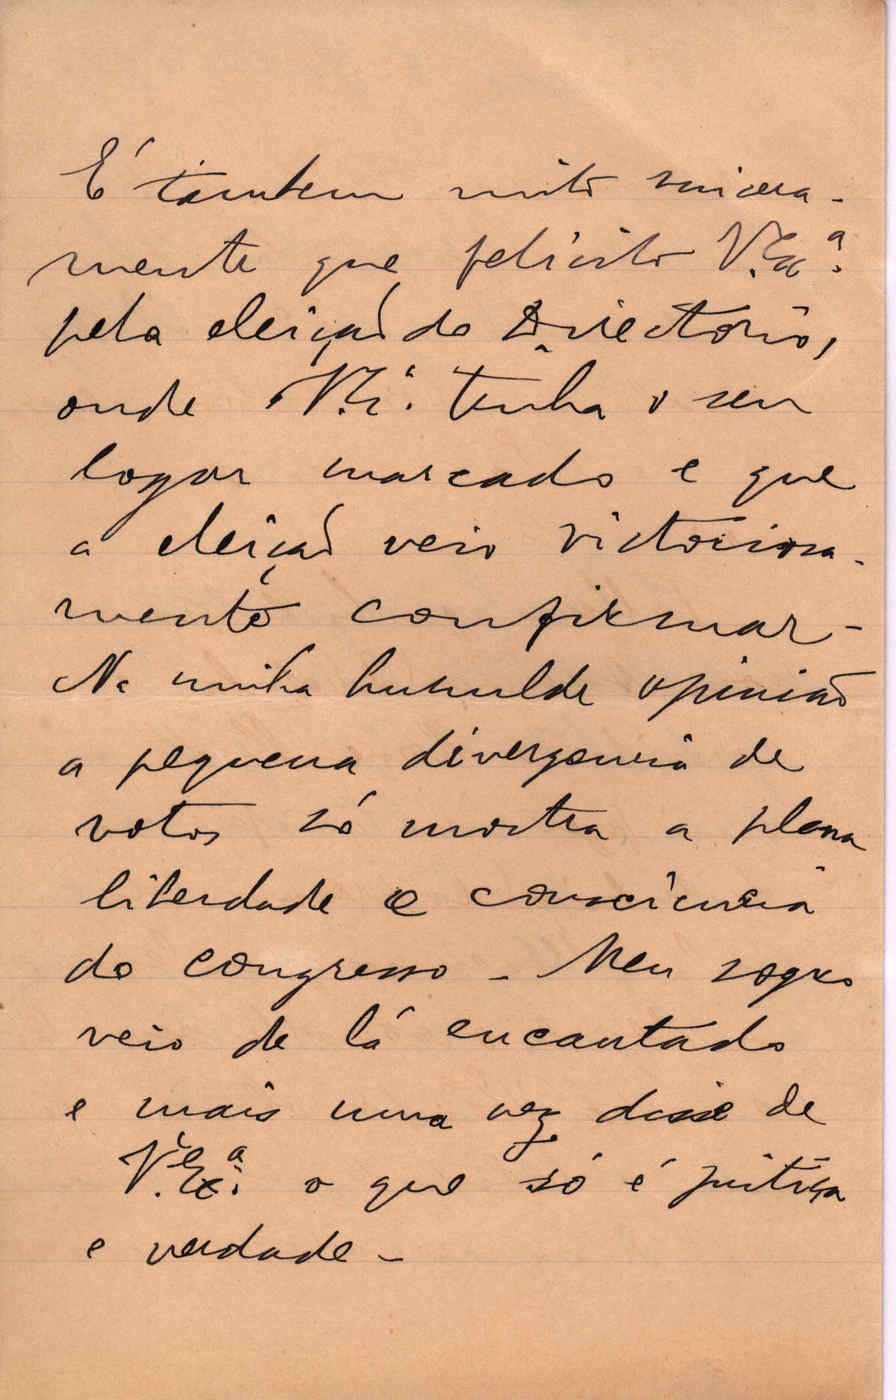 É tambem muito sincera-
mente que felicito V. Exª.
pela eleição do Directorio,
onde V. Exª. tinha o seu
logar marcado e que
a eleição veio victoriosa-
mente confirmar -
Na minha humilde opinião
a pequena divergencia de
votos só mostra a plena
liberdade e consciencia
do congresso - Meu sogro
veio de lá encantado
e mais uma vez disse de
V. Exª. o que só é justiça
e verdade -